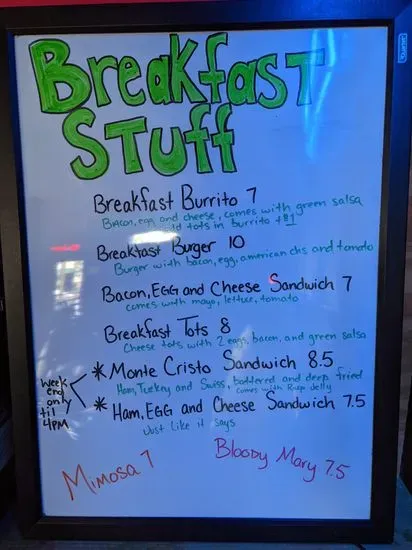 Breakfast
Stuff
Breakfast Burrito 7
Bacon, egg and cheese, comes with green salsa
add tots in burrito +$1
Breakfast Burger 10
Burger with bacon, egg, american chs and tomato
Bacon, EGG and Cheese Sandwich 7
comes with mayo, lettuce, tomato
Breakfast Tots 8
Cheese tots with 2 eggs, bacon, and green salsa
* Monte Cristo Sandwich 8.5
Ham, Turkey and Swiss, battered and deep fried
comes with Rasp Jelly
* Ham, EGG and Cheese Sandwich 7.5
Just like it says
Week
end
only
til
4PM
Mimosa 7
Bloody Mary 7.5